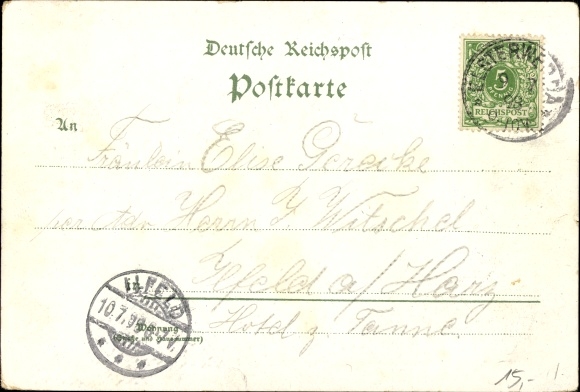 Deutsche Reichspost
Postkarte
ELSTERWERDA
5
REICHSPOST
An
Fräulein Elise Gericke
per Adr. Herrn J Witschel
in Ilfeld a/Harz
Hotel z. Tanne
Wohnung
(Straße und Hausnummer)
ILFELD
10.7.99
15,-